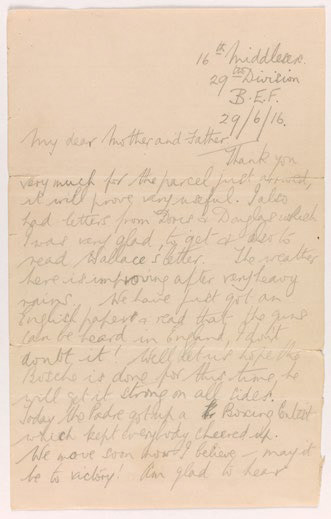 16th Middlesex.
29th Division
B.E.F.
29/6/16.
My dear Mother and Father
Thank you
very much for the parcel just arrived,
it will prove very useful. I also
had letters from Doris & Douglas which
I was very glad to get & also to
read Wallaces letter. The weather
here is improving after very heavy
rains. We have just got an
English paper & read that the guns
can be heard in England, I dont
doubt it! Well let us hope the
Bosche is done for this time, he
will get it strong on all sides.
Today the Padre got up a Boxing Contest
which kept everybody cheered up.
We move soon now I believe – may it
be to victory! Am glad to hear